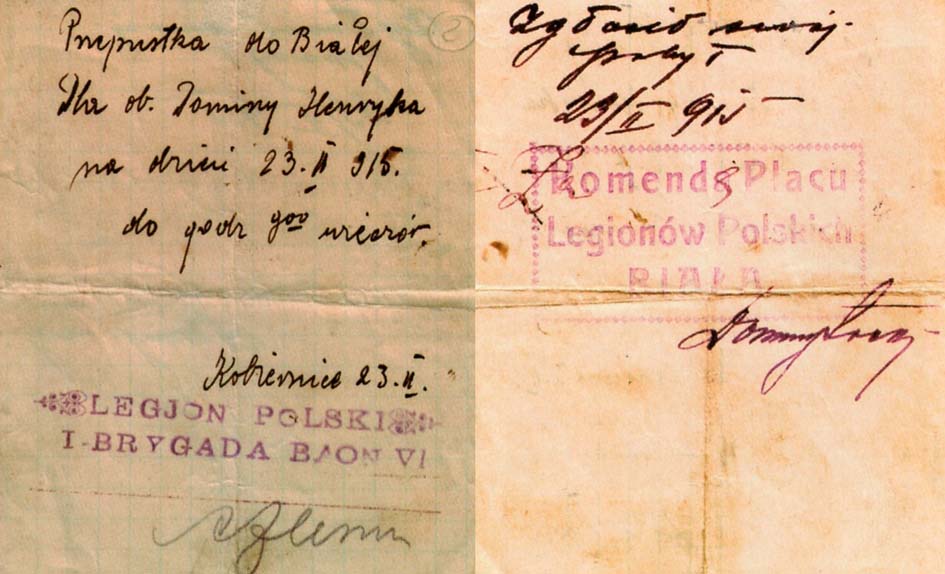 2
Przepustka do Białej
Dla ob. Dominy Henryka
na dzień 23. II 915.
do godz 9⁰⁰ wieczór.
Kobiernice 23. II.
LEGJON POLSKI
I-BRYGADA BAON VI
Zgłosił swój
pobyt
23/II 915
Komenda Placu
Legionów Polskich
BIAŁA